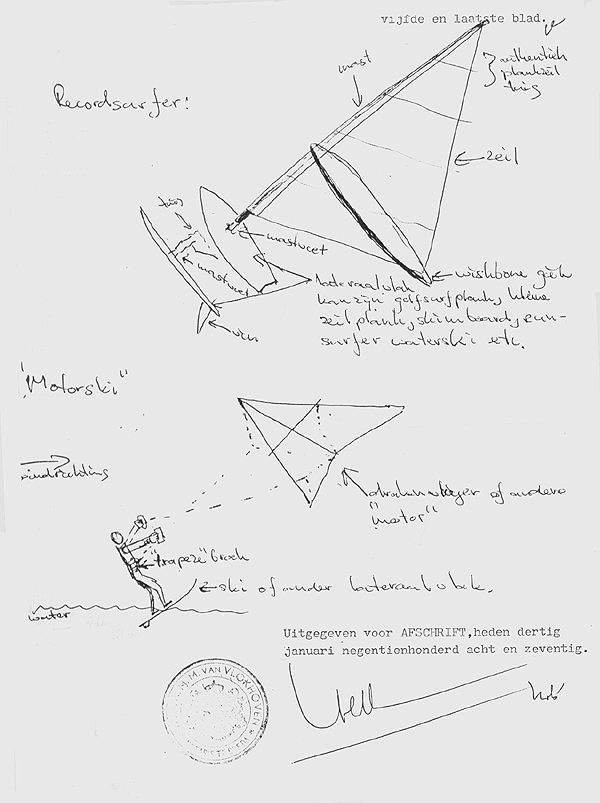 vijfde en laatste blad.
mast
authentiek
plankzeil
tuig
Recordsurfer:
zeil
tuig
mastvoet
mastvoet
wishbone giek
lateraalvlak
kan zijn golfsurfplank, kleine
zeilplank, skimboard,
surfer waterski etc.
vin
"Motorski"
windrichting
of andere
"motor"
"trapeze" broek
ski of ander lateraal vlak.
water
Uitgegeven voor AFSCHRIFT,heden dertig
januari negentienhonderd acht en zeventig.
M. VAN VLOKHOVEN